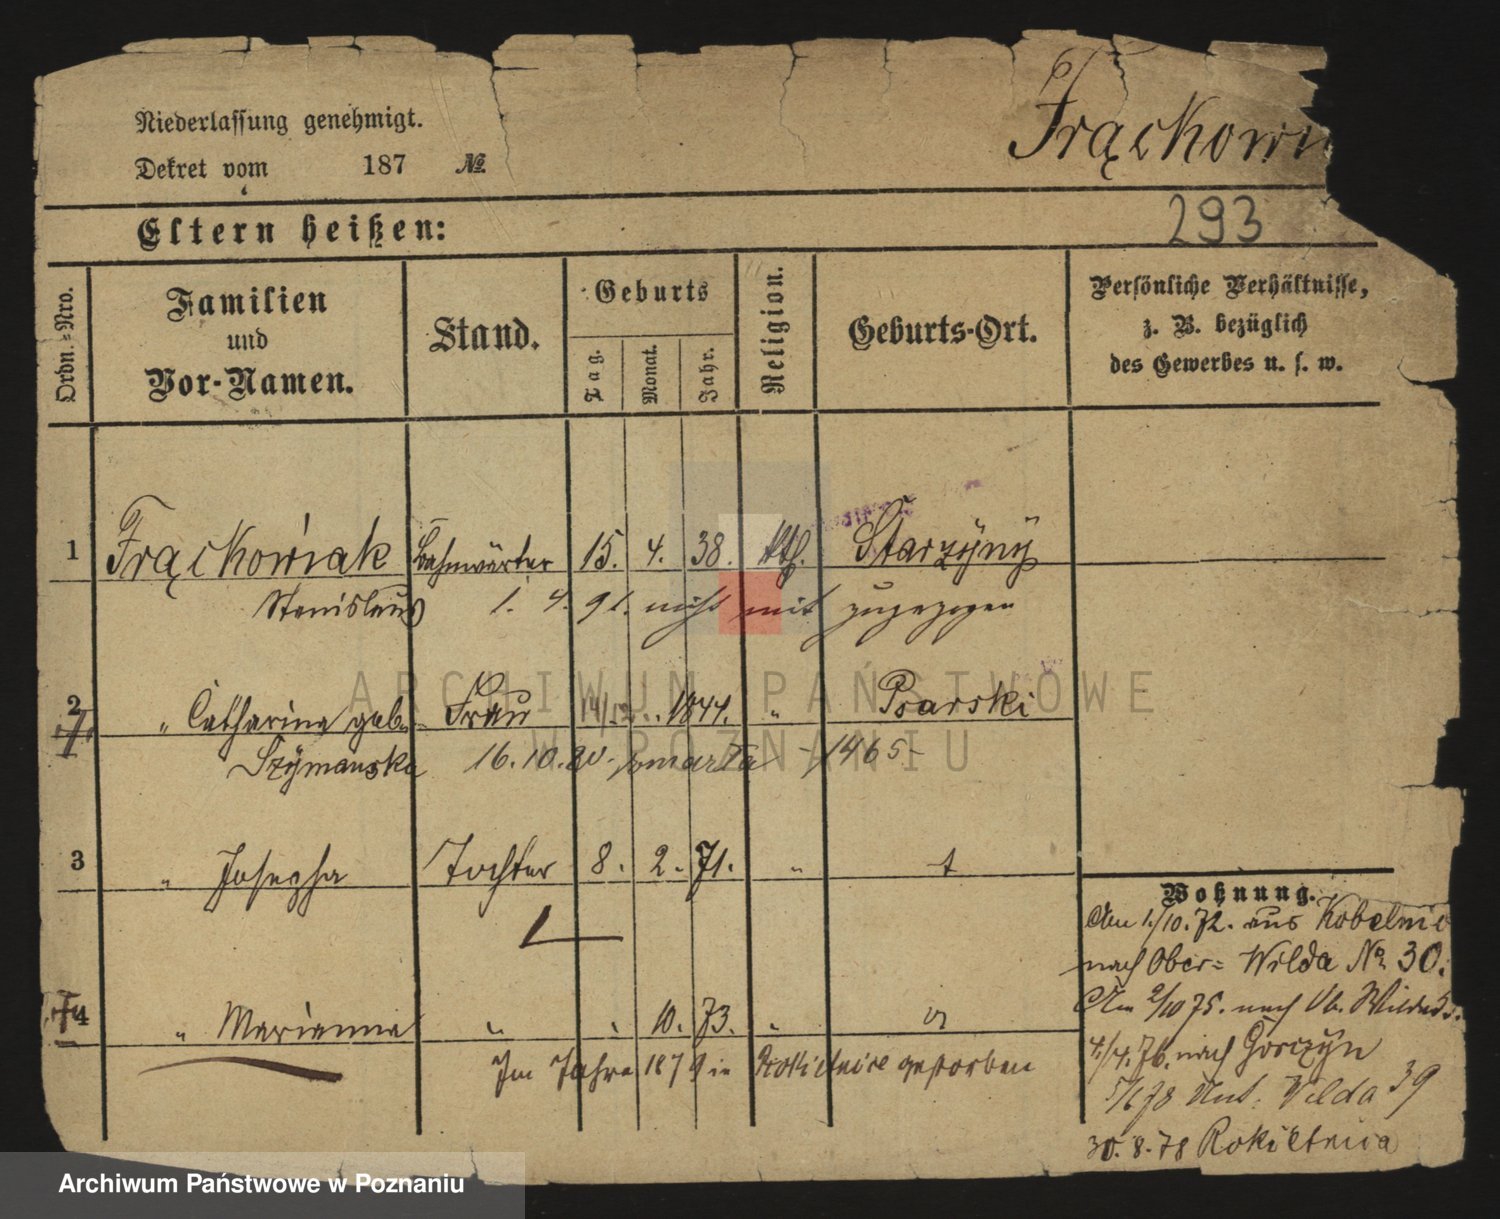 Niederlassung genehmigt.
Dekret vom 187 №
Frąckowi
293
Eltern heißen:
Ordn.-Nro.
Familien
und
Vor-Namen.
Stand.
Geburts
Tag.
Monat.
Jahr.
Religion.
Geburts-Ort.
Persönliche Verhältnisse,
z. B. bezüglich
des Gewerbes u. s. w.
1 Frąckowiak Bahnwärter 15. 4. 38. kth. Starzyny
Stanislaus 1. 4. 91. nicht mit zugezogen
2 " Catharina geb. Frau 14/12 1844. " Psarski
Szymanska 16.10.90. zmarła -1465-
3 " Josepha Tochter 8. 2. 71. "
4 " Marianna " " 10. 73. "
Im Jahre 1879 in Rokietnice gestorben
Wohnung.
Am 1/10. 72. aus Kobelnic
nach Ober- Wilda No 30.
Am 2/10 75. nach Ob. Wilda 5.
4/4. 76. nach Gorczyn
5/6 78 Unt. Wilda 39
30.8.78 Rokietnica
ARCHIWUM PAŃSTWOWE
W POZNANIU
Archiwum Państwowe w Poznaniu